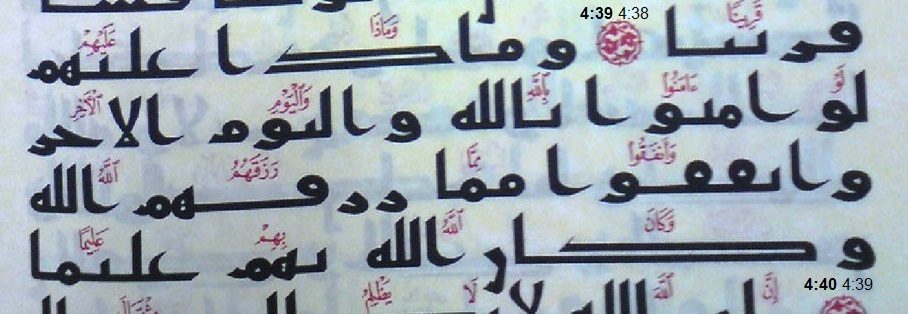 4:39 4:38
قَرِينًا وَمَاذَا عَلَيْهِمْ
قرينا وماذا عليهم
لَوْ ءَامَنُوا۟ بِٱللَّهِ وَٱلْيَوْمِ ٱلْأَخِرِ
لو امنوا بالله واليوم الاخر
وَأَنفَقُوا۟ مِمَّا رَزَقَهُمُ ٱللَّهُ
وانفقوا مما رزقهم الله
وَكَانَ ٱللَّهُ بِهِمْ عَلِيمًا
وكان الله بهم عليما
4:40 4:39
إِنَّ ٱللَّهَ لَا يَظْلِمُ مِثْقَالَ